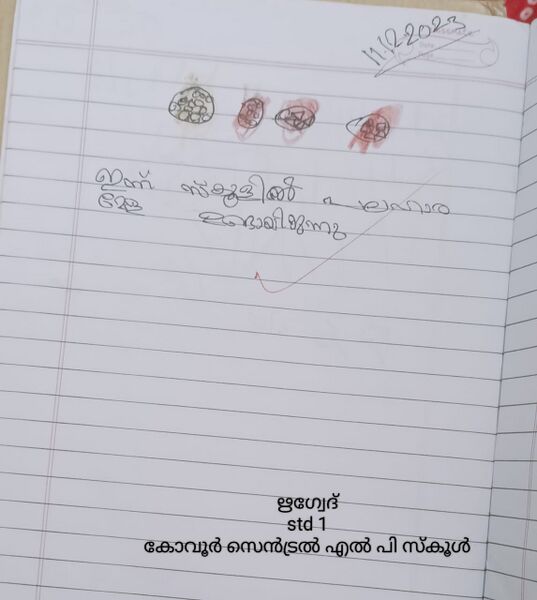 11.12.2023
ഇന്ന് സ്കൂളിൽ പലഹാര
മേള ഉണ്ടായിരുന്നു
ഋഗ്വേദ്
std 1
കോവൂർ സെൻട്രൽ എൽ പി സ്കൂൾ